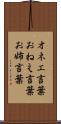 オネエ言葉
おねえ言葉
お姉言葉